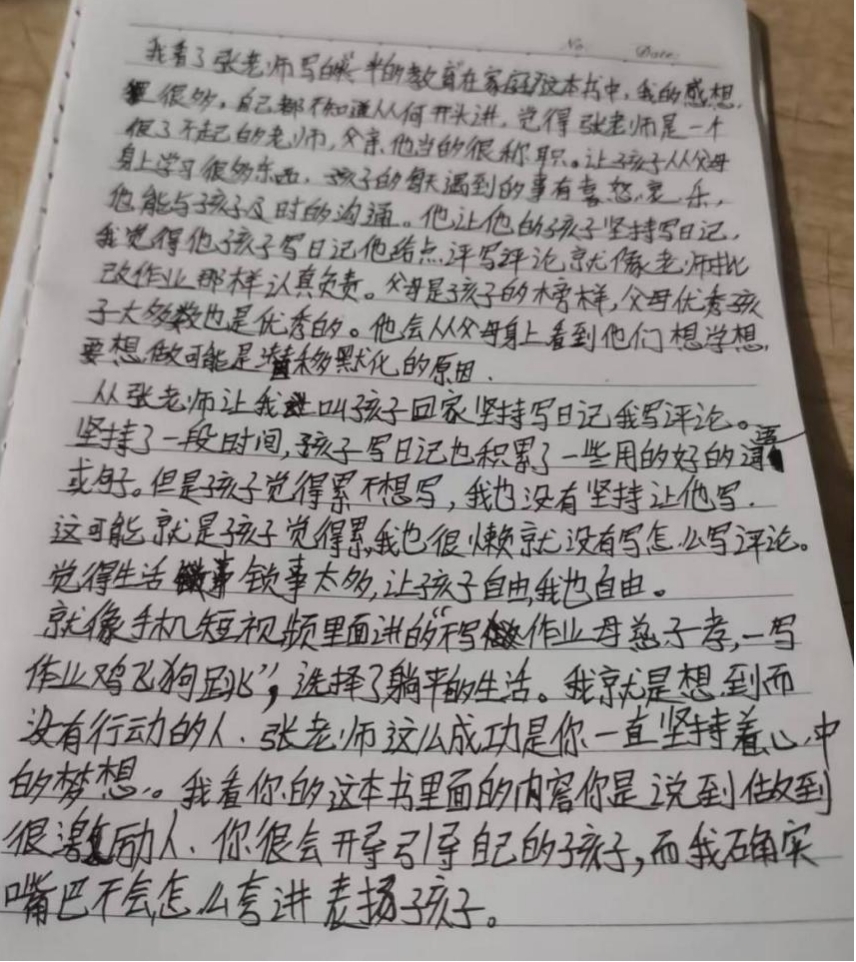 No.  Date.
我看了张老师写的"一半的教育在家庭"这本书中，我的感想
很多，自己都不知道从何开头进，觉得张老师是一个
很了不起的老师，父亲他当的很称职。让孩子从父母
身上学习很多东西，孩子的每天遇到的事有喜怒哀乐，
他能与孩子及时的沟通。他让他的孩子坚持写日记，
我觉得他孩子写日记他给点评写评论就像老师批
改作业那样认真负责。父母是孩子的榜样，父母优秀孩
子大多数也是优秀的。他会从父母身上看到他们想学想
要想做可能是潜移默化的原因．
从张老师让我叫孩子回家坚持写日记我写评论。
坚持了一段时间，孩子写日记也积累了一些用的好的词语
或句子。但是孩子觉得累不想写，我也没有坚持让他写．
这可能就是孩子觉得累，我也很懒就没有写怎么写评论。
觉得生活锁事太多，让孩子自由，我也自由。
就像手机短视频里面进的"不写作业母慈子孝，一写
作业鸡飞狗跳"，选择了躺平的生活。我就是想到而
没有行动的人．张老师这么成功是你一直坚持着心中
的梦想。我看你的这本书里面的内容你是说到做到
很激励人．你很会开导引导自己的孩子，而我确实
嘴巴不会怎么夸进表扬孩子。